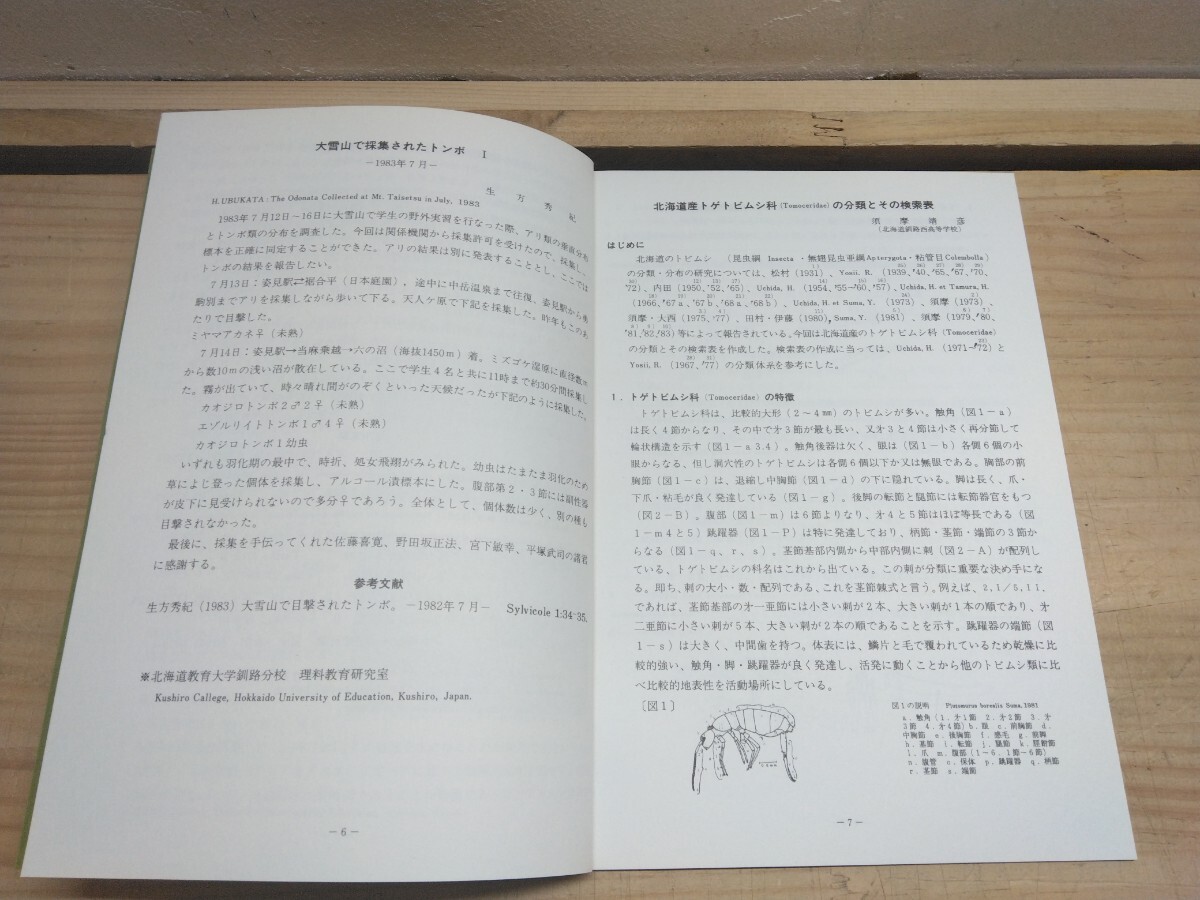 大雪山で採集されたトンボ I
－1983年7月－
生方秀紀
H.UBUKATA : The Odonata Collected at Mt. Taisetsu in July, 1983
1983年7月12日～16日に大雪山で学生の野外実習を行なった際、アリ類の垂直分布
とトンボ類の分布を調査した。今回は関係機関から採集許可を受けたので、採集した
標本を正確に同定することができた。アリの結果は別に発表することとし、ここでは
トンボの結果を報告したい。
7月13日：姿見駅⇄裾合平（日本庭園）、途中に中岳温泉まで往復、姿見駅から
駒別までアリを採集しながら歩いて下る。天人ヶ原で下記を採集した。昨年もこの
たりで目撃した。
ミヤマアカネ♀（未熟）
7月14日：姿見駅→当麻乗越→六の沼（海抜1450m）着。ミズゴケ湿原に直径数m
から数10mの浅い沼が散在している。ここで学生4名と共に11時まで約30分間採集し
た。霧が出ていて、時々晴れ間がのぞくといった天候だったが下記のように採集した。
カオジロトンボ2♂2♀（未熟）
エゾルリイトトンボ1♂4♀（未熟）
カオジロトンボ1幼虫
いずれも羽化期の最中で、時折、処女飛翔がみられた。幼虫はたまたま羽化のため
草によじ登った個体を採集し、アルコール漬標本にした。腹部第2・3節には副性器
が皮下に見受けられないので多分♀であろう。全体として、個体数は少く、別の種も
目撃されなかった。
最後に、採集を手伝ってくれた佐藤喜寛、野田坂正法、宮下敏幸、平塚武司の諸君
に感謝する。
参考文献
生方秀紀（1983）大雪山で目撃されたトンボ。－1982年7月－ Sylvicole 1:34-35.
※北海道教育大学釧路分校 理科教育研究室
Kushiro Callege, Hokkaido University of Education, Kushiro, Japan.
－6－
北海道産トゲトビムシ科（Tomoceridae）の分類とその検索表
須摩靖彦
（北海道釧路西高等学校）
はじめに
北海道のトビムシ （昆虫綱 Insecta・無翅昆虫亜綱 Apterygota・粘管目 Colembolla）
の分類・分布の研究については、松村（1931）、Yosii, R.（1939、'40、'65、'67、'70、
'72）、内田（1950、'52、'65）、Uchida, H.（1954、'55～'60、'57）、Uchida, H. et Tamura, H.
（1966、'67a、'67b、'68a、'68b）、Uchida, H. et Suma, Y.（1973）、須摩（1973）、
須摩・大西（1975、'77）、田村・伊藤（1980）、Suma, Y.（1981）、須摩（1979、'80、
'81、'82、'83）等によって報告されている。今回は北海道産のトゲトビムシ科（Tomoceridae）
の分類とその検索表を作成した。検索表の作成に当っては、Uchida, H.（1971～'72）と
Yosii, R.（1967、'77）の分類体系を参考にした。
1．トゲトビムシ科（Tomoceridae）の特徴
トゲトビムシ科は、比較的大形（2～4㎜）のトビムシが多い。触角（図1－a）
は長く4節からなり、その中で才3節が最も長い、又才3と4節は小さく再分節して
輪状構造を示す（図1－a 3.4）。触角後器は欠く、眼は（図1－b）各側6個の小
眼からなる、但し洞穴性のトゲトビムシは各側6個以下か又は無眼である。胸部の前
胸節（図1－c）は、退縮し中胸節（図1－d）の下に隠れている。脚は長く、爪・
下爪・粘毛が良く発達している（図1－g）。後脚の転節と腿節には転節器官をもつ
（図2－B）。腹部（図1－m）は6節よりなり、才4と5節はほぼ等長である（図
1－m4と5）跳躍器（図1－P）は特に発達しており、柄節・茎節・端節の3節か
らなる（図1－q、r、s）。茎節基部内側から中部内側に刺（図2－A）が配列し
ている、トゲトビムシの科名はこれから出ている。この刺が分類に重要な決め手にな
る。即ち、刺の大小・数・配列である、これを茎節棘式と言う。例えば、2,1/5,11,
であれば、茎節基部の才一亜節には小さい刺が2本、大きい刺が1本の順であり、才
二亜節に小さい刺が5本、大きい刺が2本の順であることを示す。跳躍器の端節（図
1－s）は大きく、中間歯を持つ。体表には、鱗片と毛で覆われているため乾燥に比
較的強い、触角・脚・跳躍器が良く発達し、活発に動くことから他のトビムシ類に比
べ比較的地表性を活動場所にしている。
〔図1〕
図1の説明 Plutomurus borealis Suma, 1981
a．触角（1．才1節 2．才2節 3．才
3節 4．才4節）b．眼 c．前胸節 d．
中胸節 e．後胸節 f．感毛 g．前脚
h．基節 i．転節 j．腿節 k．脛跗節
l．爪 m．腹部（1～6．1節～6節）
n．腹管 o．保体 p．跳躍器 q．柄節
r．茎節 s．端節
－7－